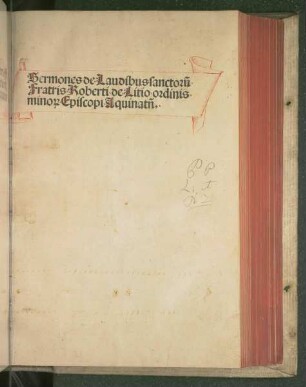 Sermones de Laudibus sanctorū
Fratris Roberti de Litio ordinis
minoꝝ Episcopi Aquinatñ.